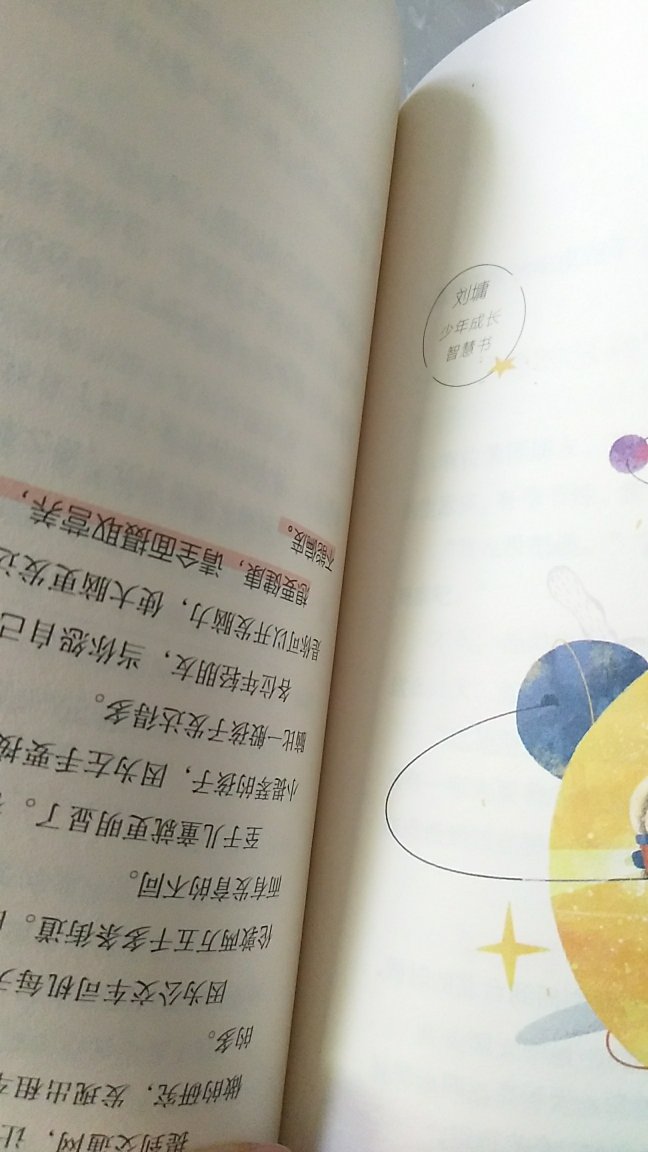 提到交通网，让
做的研究，发现出租
的多。
因为公交车司机每天
伦敦两万五千多条街道。
而有发育的不同。
至于儿童就更明显了。
小提琴的孩子，因为左手要按
脑比一般孩子发达得多。
各位年轻朋友，当你怨自己
是你可以开发脑力，使大脑更发达
想要健康，请全面摄取营养，
不能偏废。
刘墉
少年成长
智慧书